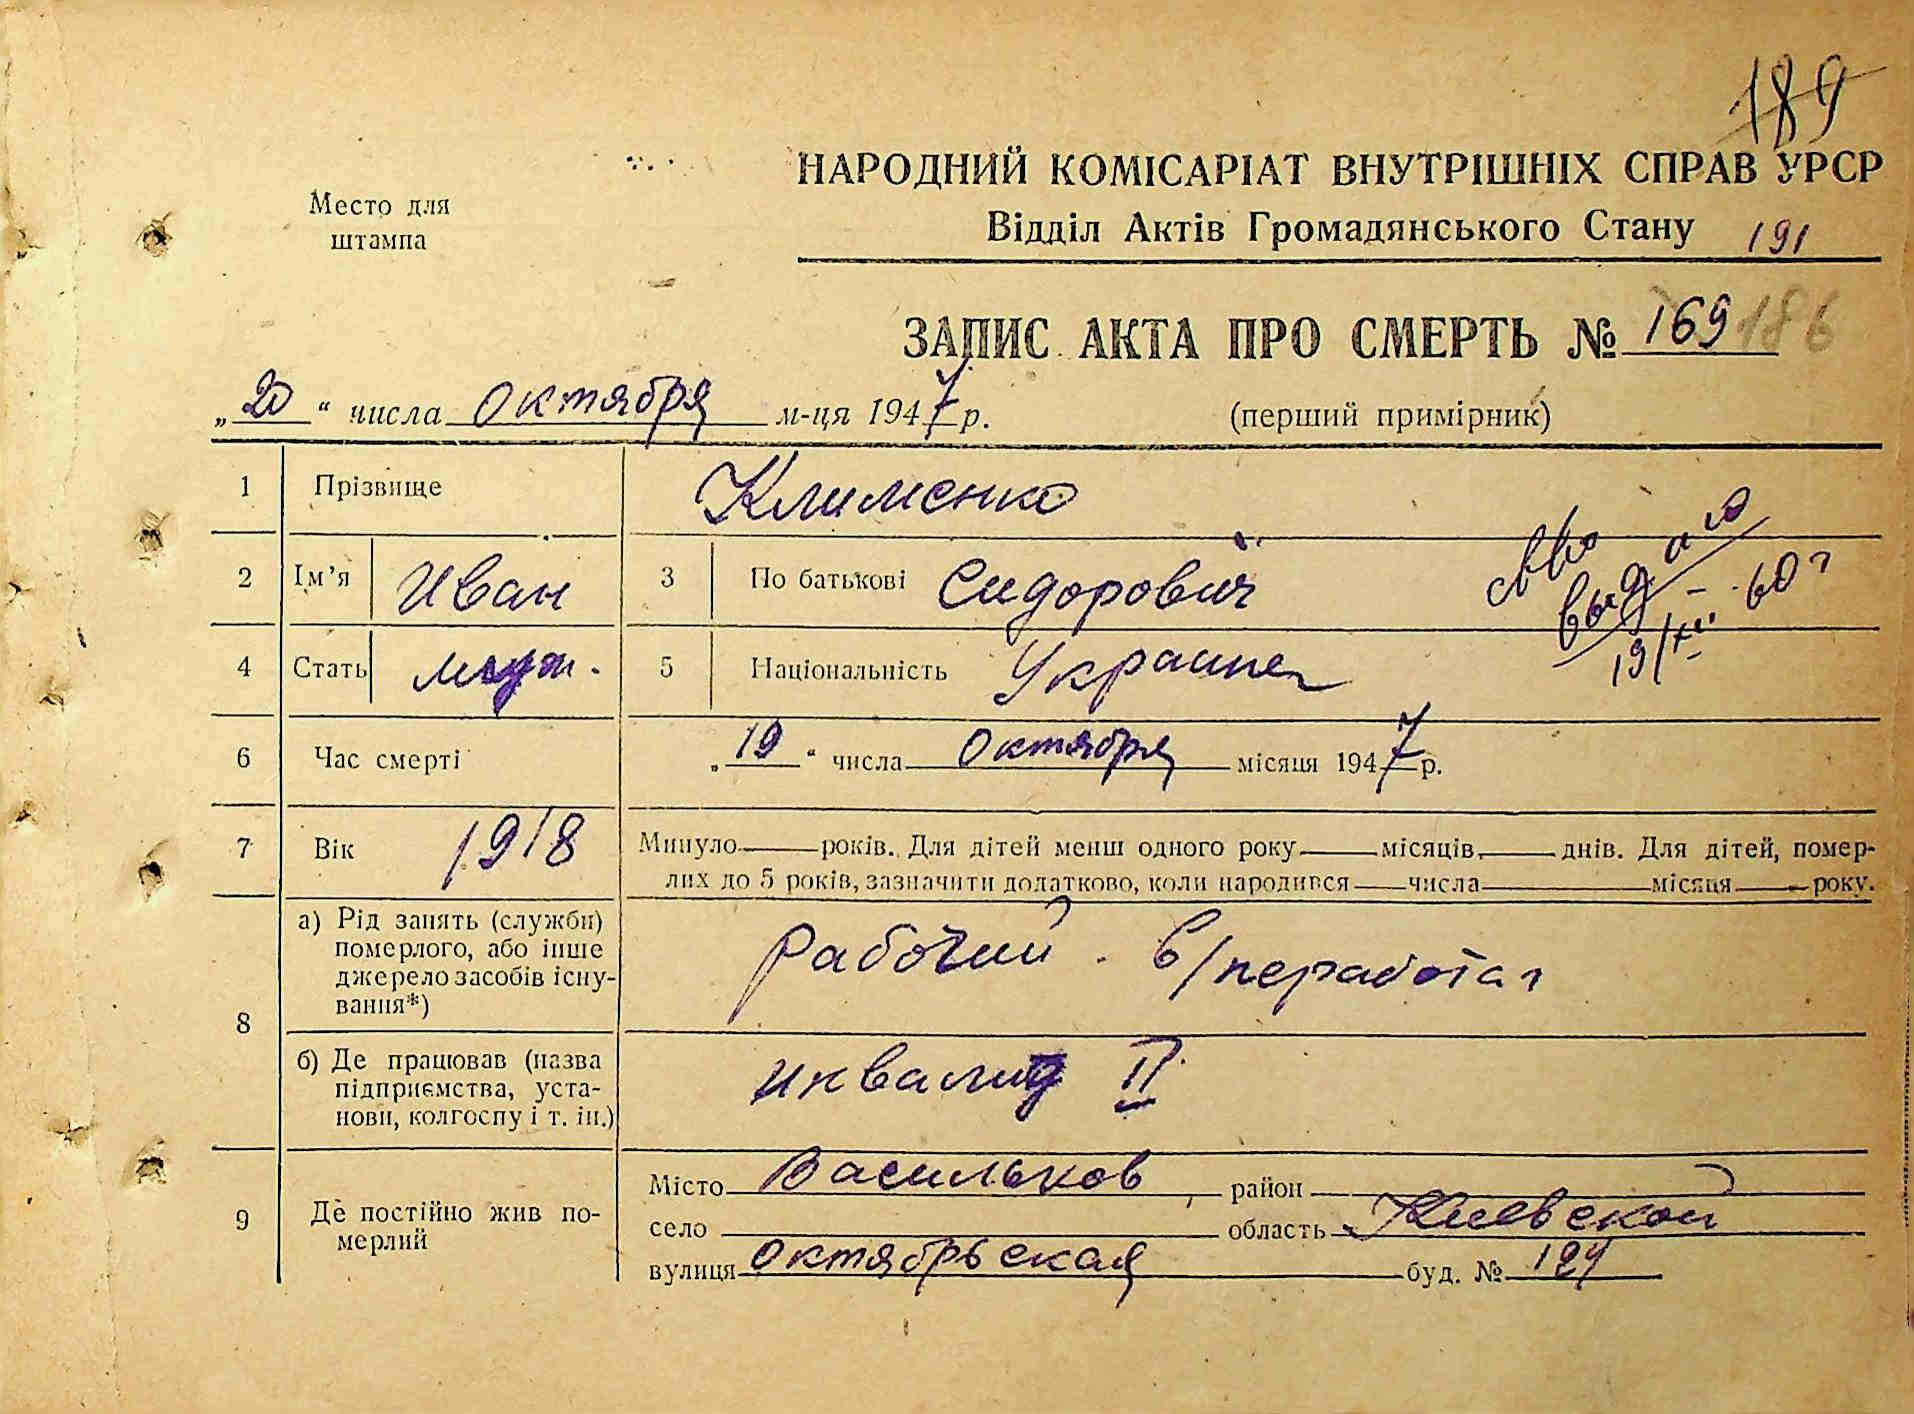 189
НАРОДНИЙ КОМІСАРІАТ ВНУТРІШНІХ СПРАВ УРСР
Место для
штампа
Відділ Актів Громадянського Стану 191
ЗАПИС АКТА ПРО СМЕРТЬ № 169 186
„20“ числа Октября м-ця 1947 р. (перший примірник)
1 Прізвище Клименко
2 Ім’я Иван 3 По батькові Сидорович
выдано
19/XII 60 г
4 Стать муж. 5 Національність Украинец
6 Час смерті „19“ числа Октября місяця 1947 р.
7 Вік 1918 Минуло року. Для дітей менш одного року місяців, днів. Для дітей, помер-
лих до 5 років, зазначити додатково, коли народився числа місяця року.
8 а) Рід занять (служби)
померлого, або інше
джерело засобів існу-
вання*)
Рабочий. в/ неработал
б) Де працював (назва
підприємства, уста-
нови, колгоспу і т. ін.)
инвалид II
9 Де постійно жив по-
мерлий
Місто Васильков, район
село область Киевской
вулиця Октябрьская буд. № 124